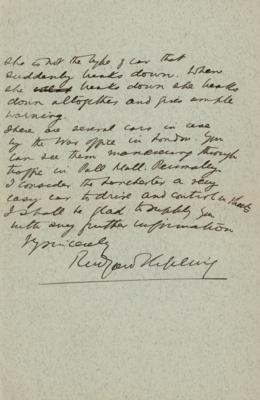 She is not the type of car that
suddenly breaks down. When
she breaks down she breaks
down altogether and gives ample
warning.
There are several cars in case
by the War office in London. You
can see them manœuvring through
traffic in Pall Mall. Personally
I consider the Lanchester a very
easy car to drive and control in
I shall be glad to supply you
with any further information
Vy sincerely
Rudyard Kipling